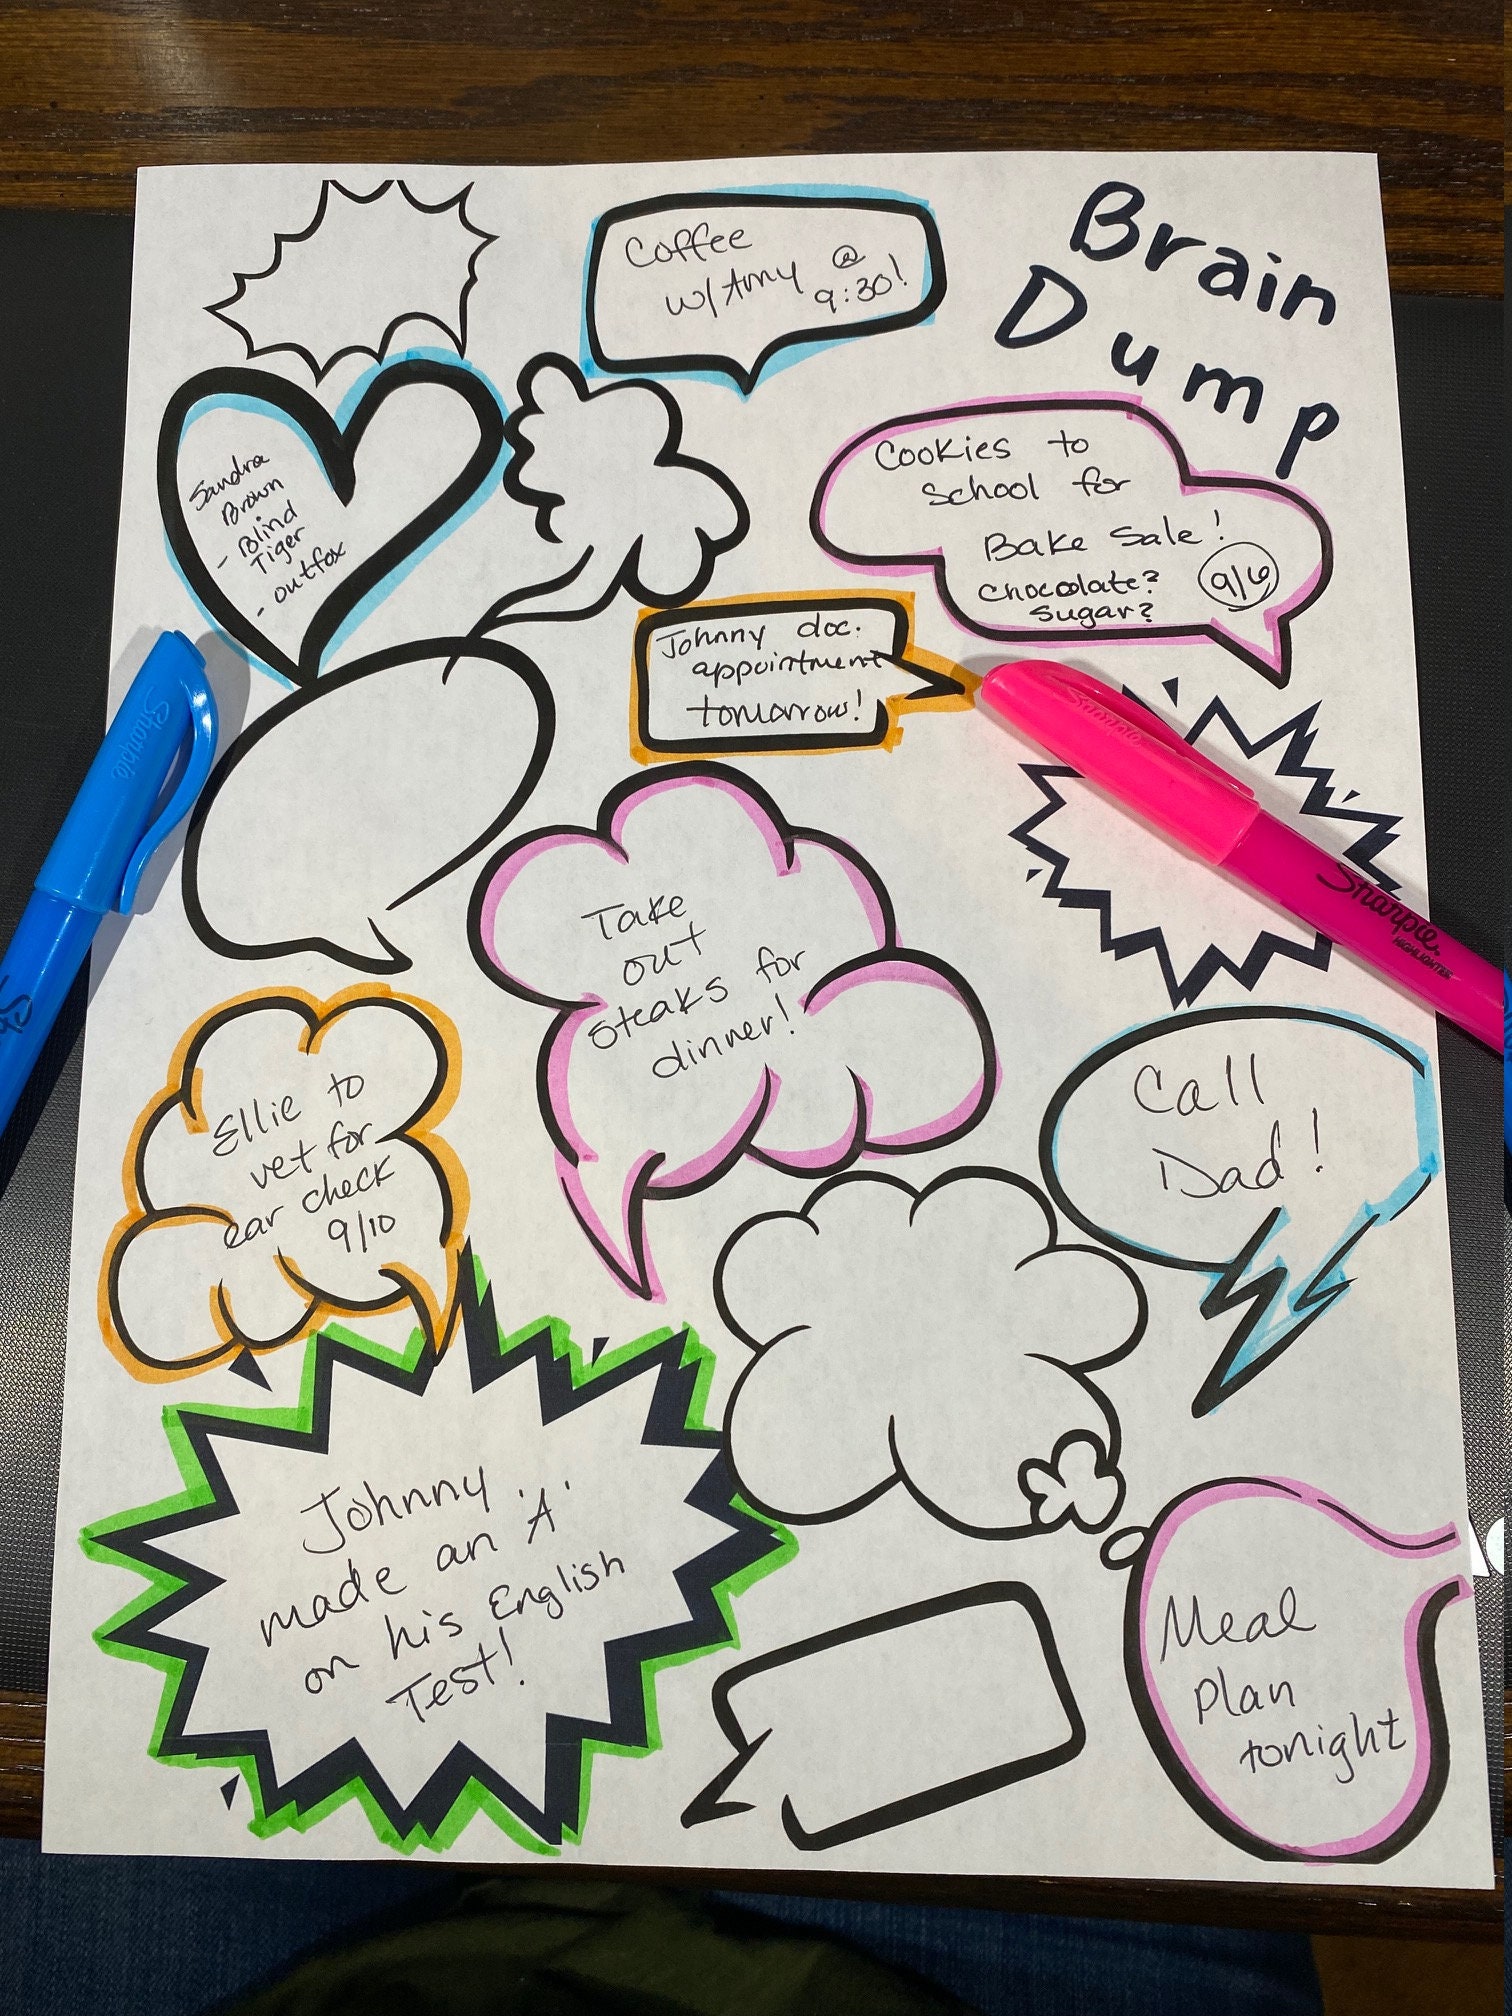 Brain
Dump
Coffee
w/ Amy @
9:30!
Sandra
Brown
- Blind
Tiger
- outfox
Cookies to
School for
Bake Sale!
chocolate?
Sugar?
9/6
Johnny doc.
appointment
tomorrow!
Sharpie
Sharpie
Sharpie
HIGHLIGHTER
Take
out
steaks for
dinner!
Ellie to
vet for
ear check
9/10
Call
Dad!
Johnny
made an "A"
on his English
Test!
Meal
Plan
tonight